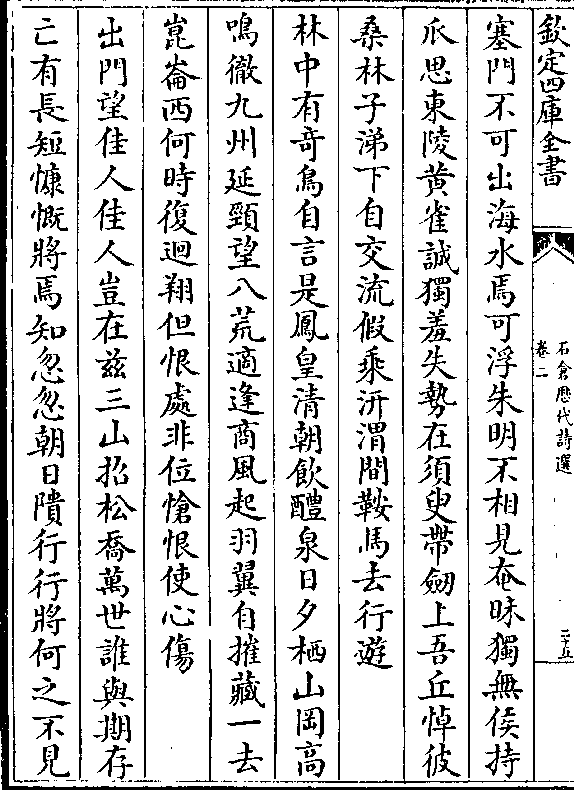 欽定四庫全書
石倉歷代詩選
卷二
二十五
塞門不可出海水焉可浮朱明不相見奄昧獨無侯持
瓜思東陵黄雀誠獨羞失勢在須臾帶劒上吾丘悼彼
桑林子涕下自交流假乘汧渭間鞍馬去行遊
林中有竒鳥自言是鳳皇清朝飲醴泉日夕栖山岡高
鳴徹九州延頸望八荒適逢商風起羽翼自摧藏一去
崑崙西何時復迴翔但恨處非位愴恨使心傷
出門望佳人佳人豈在兹三山招松喬萬世誰與期存
亡有長短慷慨將焉知忽忽朝日隤行行將何之不見